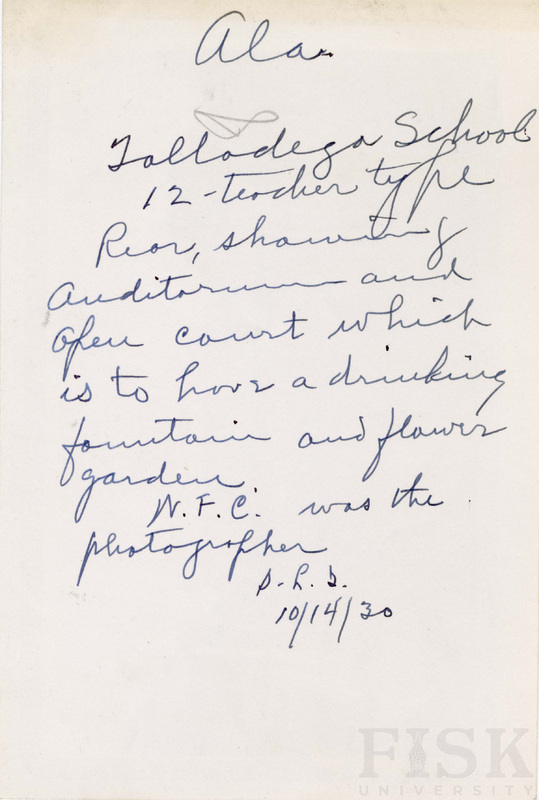 Ala.
Talladega School
12-teacher type
Rear, showing
Auditorium and
open court which
is to have a drinking
fountain and flower
garden
N.F.C. was the
photographer
S.L.S.
10/14/30
FISK
UNIVERSITY